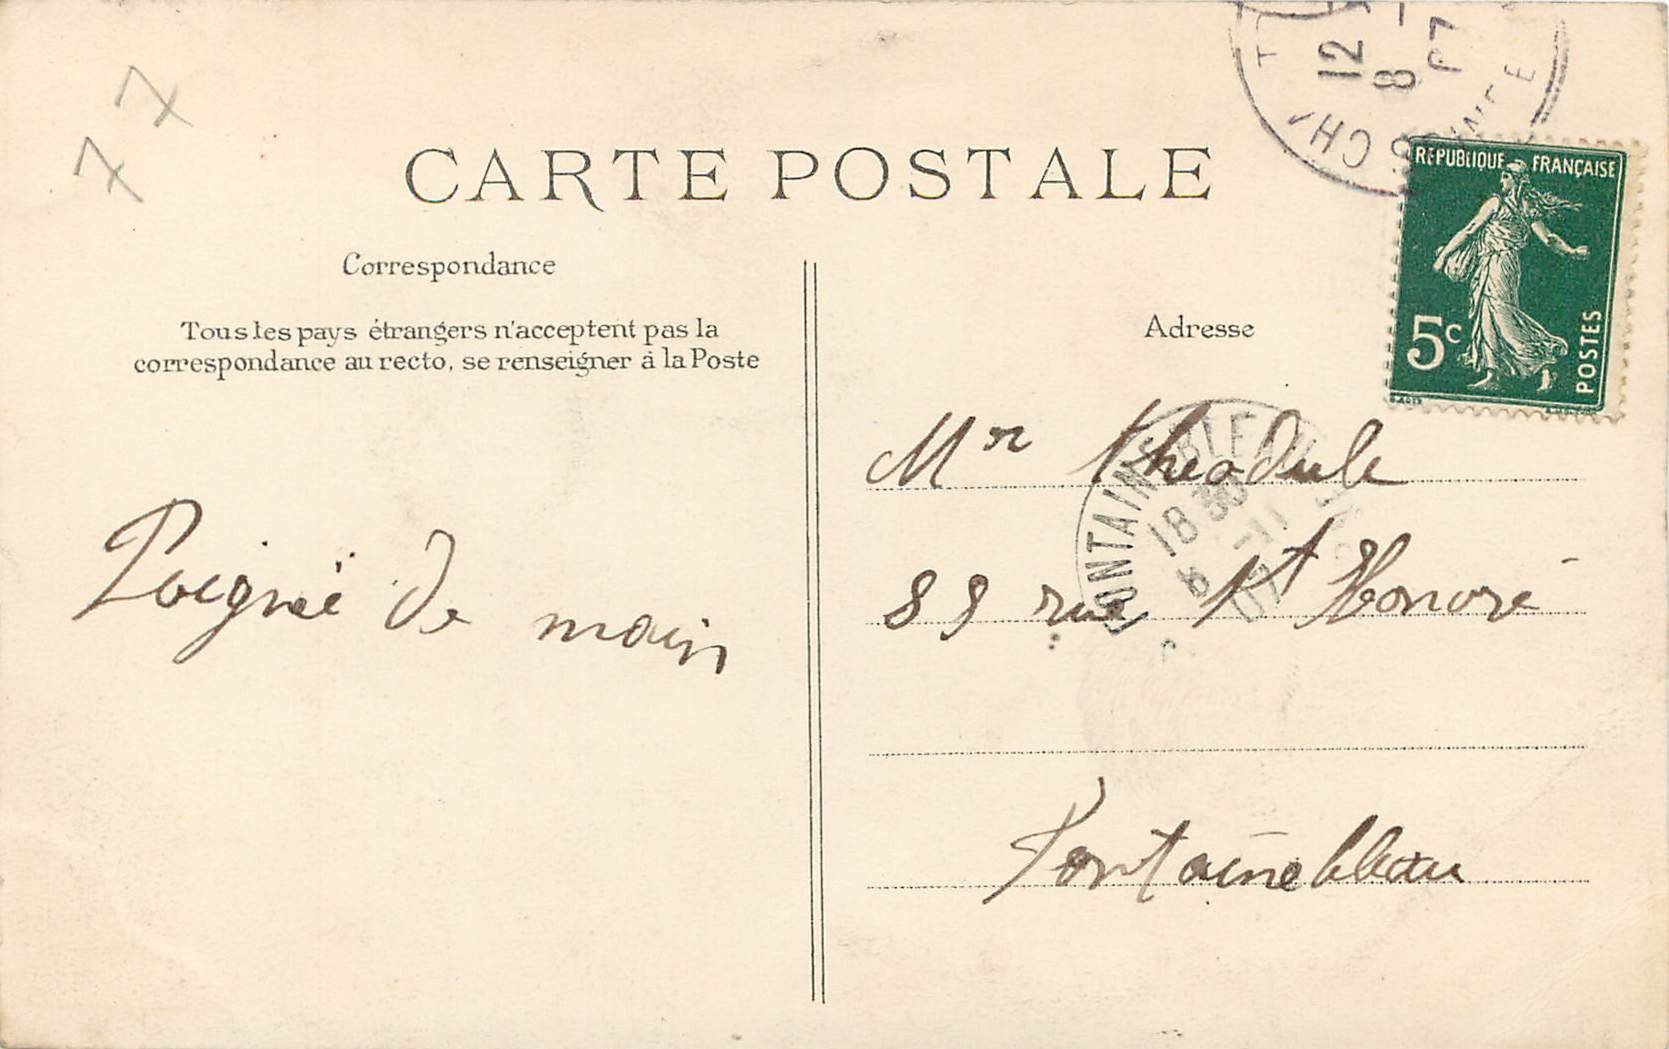 77
CARTE POSTALE
RÉPUBLIQUE FRANÇAISE
5c
POSTES
12
8
07
CH
Correspondance
Tous les pays étrangers n'acceptent pas la
correspondance au recto, se renseigner à la Poste
Poignée de main
Adresse
Mr Theodule
FONTAINEBLEAU
18 30
8 -11
07
89 rue St Honoré
Fontainebleau